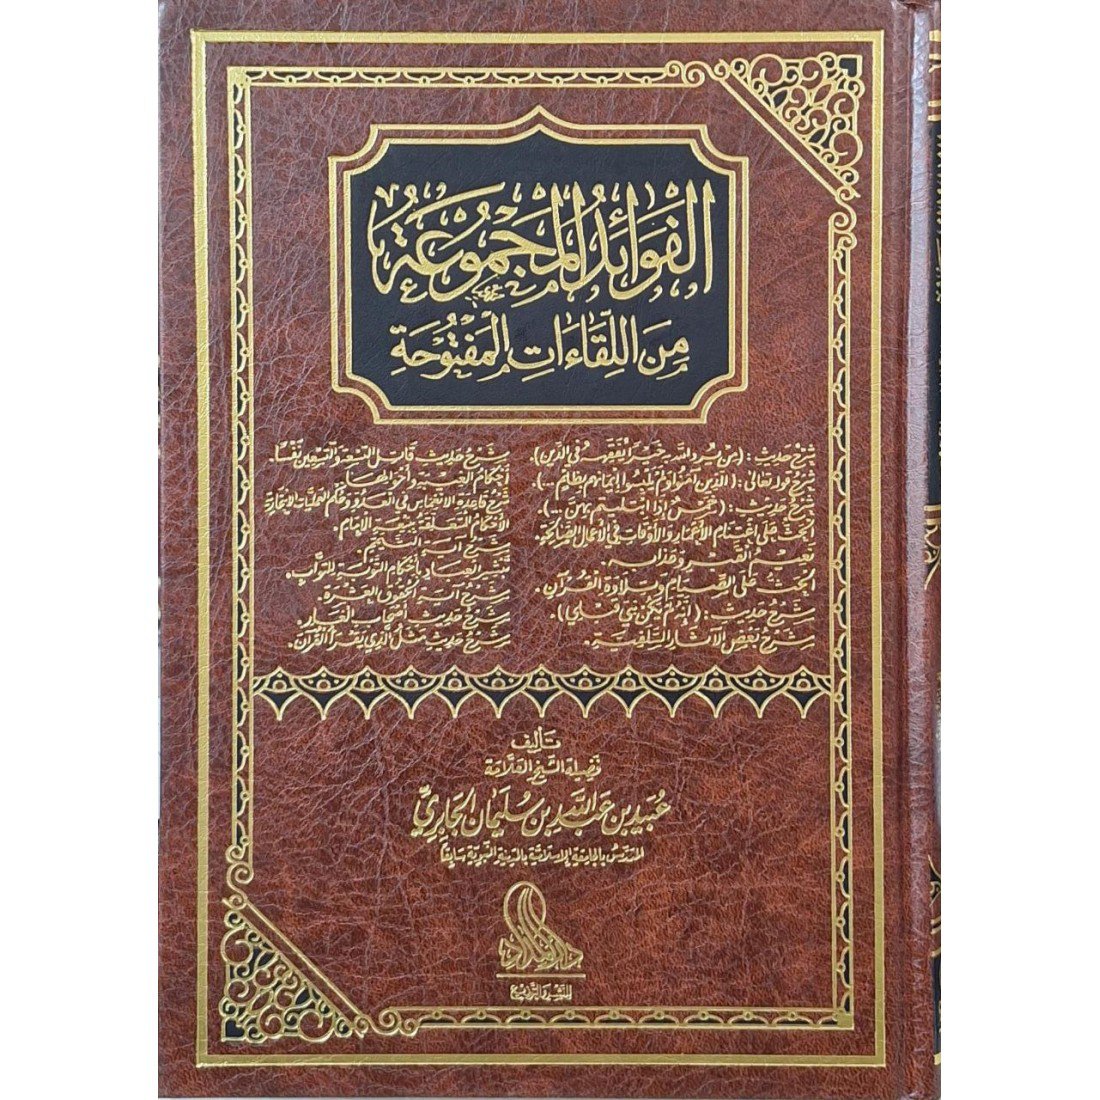 الفَوَائِدُ المَجْمُوعَةُ
مِنَ اللِّقَاءَاتِ المَفْتُوحَةِ
شرح حديث : (من يرد الله خيرا يفقهه في الدين).
شرح قوله تعالى : (الذين آمنوا ولم يلبسوا إيمانهم بظلم ...).
شرح حديث :
الحث على اغتنام الأعمار والأوقات في الأعمال الصالحة.
نعيم القبر وعذابه.
الحث على الصيام وتلاوة القرآن.
شرح حديث : (إنه لم يكن نبي قبلي).
شرح بعض الآثار السلفية.
شرح حديث قاتل التسعة والتسعين نفسا.
أحكام الغيبة وأحوالها
شرح قاعدة الانغماس في العدو وحكم العمليات الانتحارية
الأحكام المتعلقة ببيعة الإمام.
شرح آية
تبشير العباد بأحكام التوبة للتواب.
شرح آية الحقوق العشرة.
شرح حديث أصحاب الغار.
شرح حديث مثل الذي يقرأ القرآن.
تأليف
فضيلة الشيخ العلامة
عُبَيد بن عَبد الله بن سُلَيمَان الجَابِريِّ
المدرس بالجامعة الإسلامية بالمدينة النبوية سابقًا
للنشر والتوزيع